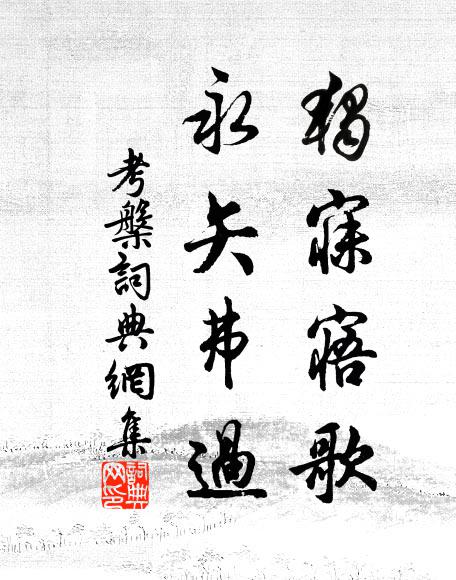 獨寐寤歌
永矢弗過
考槃詞典網集
詞典網印